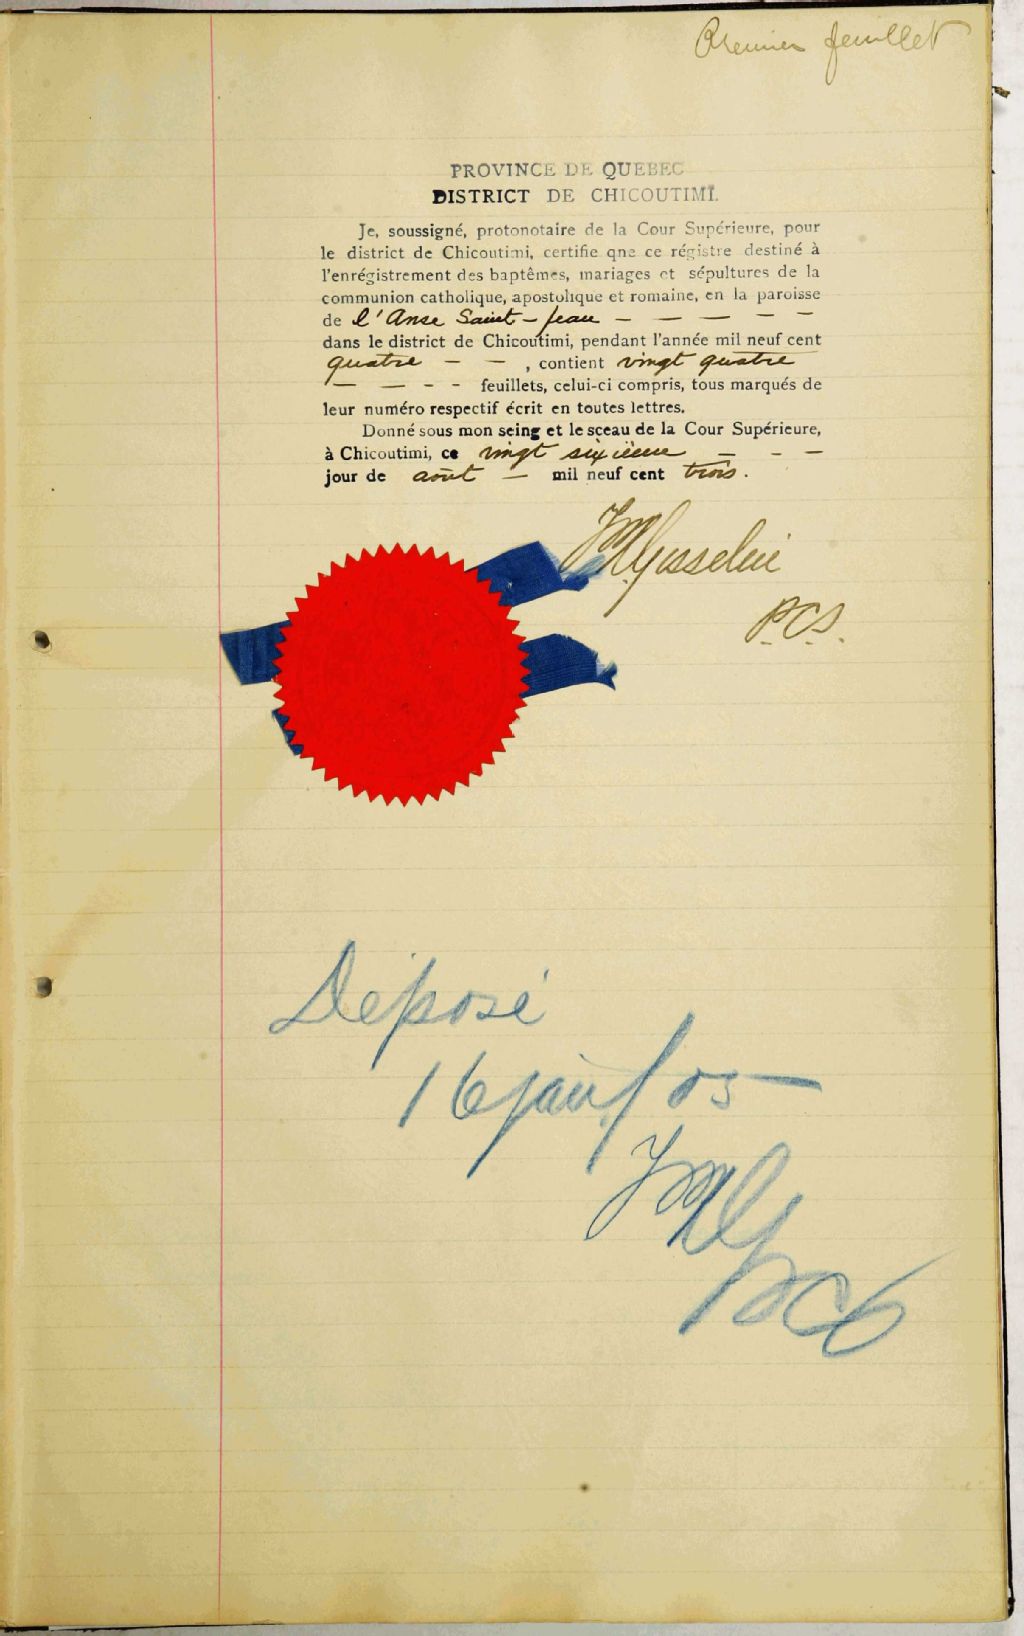 Premier feuillet
PROVINCE DE QUEBEC
DISTRICT DE CHICOUTIMI.
Je, soussigné, protonotaire de la Cour Supérieure, pour
le district de Chicoutimi, certifie qne ce régistre destiné à
l'enrégistrement des baptêmes, mariages et sépultures de la
communion catholique, apostolique et romaine, en la paroisse
de l'Anse Saint-Jean — — — — —
dans le district de Chicoutimi, pendant l'année mil neuf cent
quatre — — , contient vingt quatre
— — — - feuillets, celui-ci compris, tous marqués de
leur numéro respectif écrit en toutes lettres.
Donné sous mon seing et le sceau de la Cour Supérieure,
à Chicoutimi, ce vingt sixième — - —
jour de août — mil neuf cent trois.
P.C.S.
Déposé
16 janv/05